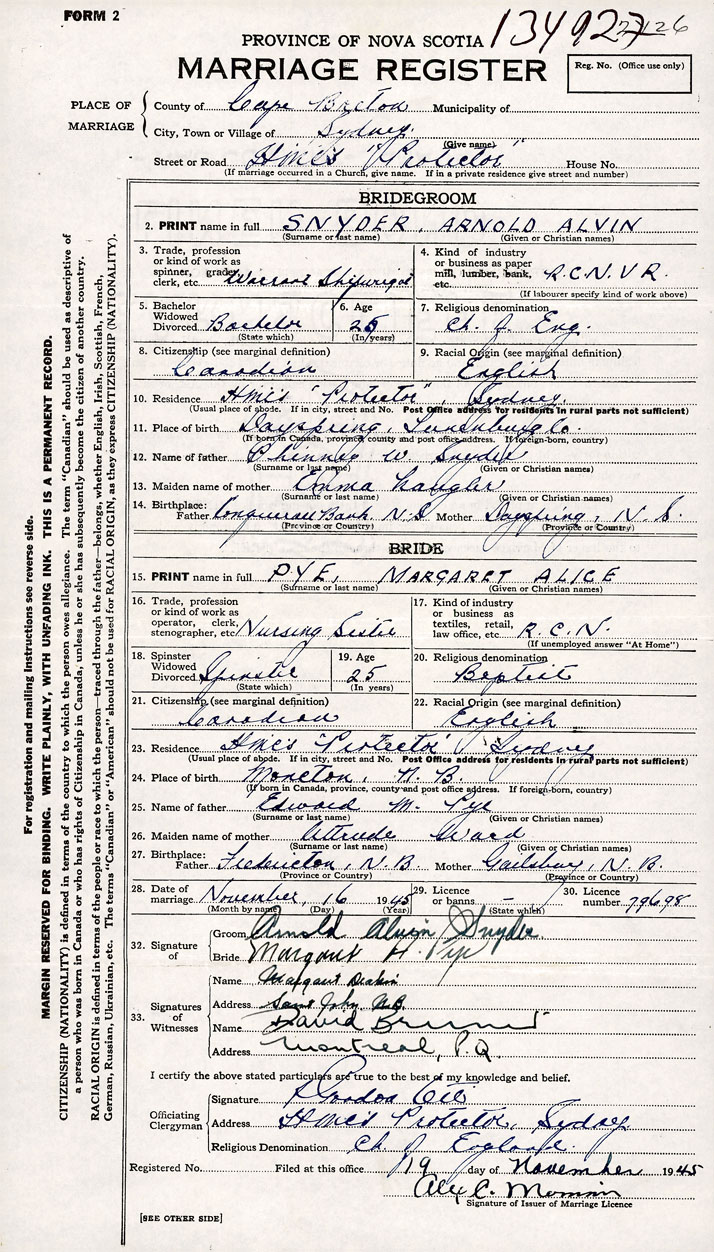 FORM 2
134927
PROVINCE OF NOVA SCOTIA
MARRIAGE REGISTER
Reg. No. (Office use only)
PLACE OF MARRIAGE
County of Cape Breton Municipality of
City, Town or Village of Sydney.
(Give name)
Street or Road HMCS "Protector" House No.
(If marriage occurred in a Church, give name. If in a private residence give street and number)
BRIDEGROOM
2. PRINT name in full SNYDER, ARNOLD ALVIN
(Surname or last name) (Given or Christian names)
3. Trade, profession or kind of work as spinner, grader, clerk, etc. Warrant Shipwright
4. Kind of industry or business as paper mill, lumber, bank, etc. R.C.N.V.R.
(If labourer specify kind of work above)
5. Bachelor Widowed Divorced Bachelor
(State which)
6. Age 25
(In years)
7. Religious denomination Ch. of Eng.
8. Citizenship (see marginal definition) Canadian
9. Racial Origin (see marginal definition) English
10. Residence HMCS "Protector", Sydney.
(Usual place of abode. If in city, street and No. Post Office address for residents in rural parts not sufficient)
11. Place of birth Dayspring, Lunenburg Co.
(If born in Canada, province, county and post office address. If foreign-born, country)
12. Name of father W Snyder
(Surname or last name) (Given or Christian names)
13. Maiden name of mother Emma Naugler
(Surname or last name) (Given or Christian names)
14. Birthplace: Father Conquerall Bank, N.S Mother Dayspring, N.S.
(Province or Country) (Province or Country)
BRIDE
15. PRINT name in full PYE, MARGARET ALICE
(Surname or last name) (Given or Christian names)
16. Trade, profession or kind of work as operator, clerk, stenographer, etc. Nursing Sister
17. Kind of industry or business as textiles, retail, law office, etc. R.C.N.
(If unemployed answer "At Home")
18. Spinster Widowed Divorced Spinster
(State which)
19. Age 25
(In years)
20. Religious denomination Baptist
21. Citizenship (see marginal definition) Canadian
22. Racial Origin (see marginal definition) English
23. Residence HMCS "Protector", Sydney
(Usual place of abode. If in city, street and No. Post Office address for residents in rural parts not sufficient)
24. Place of birth Moncton, N.B.
(If born in Canada, province, county and post office address. If foreign-born, country)
25. Name of father Edward M. Pye
(Surname or last name) (Given or Christian names)
26. Maiden name of mother Ward
(Surname or last name) (Given or Christian names)
27. Birthplace: Father Fredericton, N.B. Mother N.B.
(Province or Country) (Province or Country)
28. Date of marriage November, 16 1945
(Month by name) (Day) (Year)
29. Licence or banns –
(State which)
30. Licence number 79698
32. Signature of
Groom Arnold Alvin Snyder
Bride Margaret A. Pye
33. Signatures of Witnesses
Name Margaret
Address Saint John N.B.
Name David
Address Montreal, P.Q.
I certify the above stated particulars are true to the best of my knowledge and belief.
Officiating Clergyman
Signature
Address HMCS Protector, Sydney
Religious Denomination Ch. of England.
Registered No. Filed at this office 19 day of November 1945
Alex C.
Signature of Issuer of Marriage Licence
[SEE OTHER SIDE]
For registration and mailing instructions see reverse side.
MARGIN RESERVED FOR BINDING. WRITE PLAINLY, WITH UNFADING INK. THIS IS A PERMANENT RECORD.
CITIZENSHIP (NATIONALITY) is defined in terms of the country to which the person owes allegiance. The term "Canadian" should be used as descriptive of
a person who was born in Canada or who has rights of Citizenship in Canada, unless he or she has subsequently become the citizen of another country.
RACIAL ORIGIN is defined in terms of the people or race to which the person—traced through the father—belongs, whether English, Irish, Scottish, French,
German, Russian, Ukrainian, etc. The terms "Canadian" or "American" should not be used for RACIAL ORIGIN, as they express CITIZENSHIP (NATIONALITY).